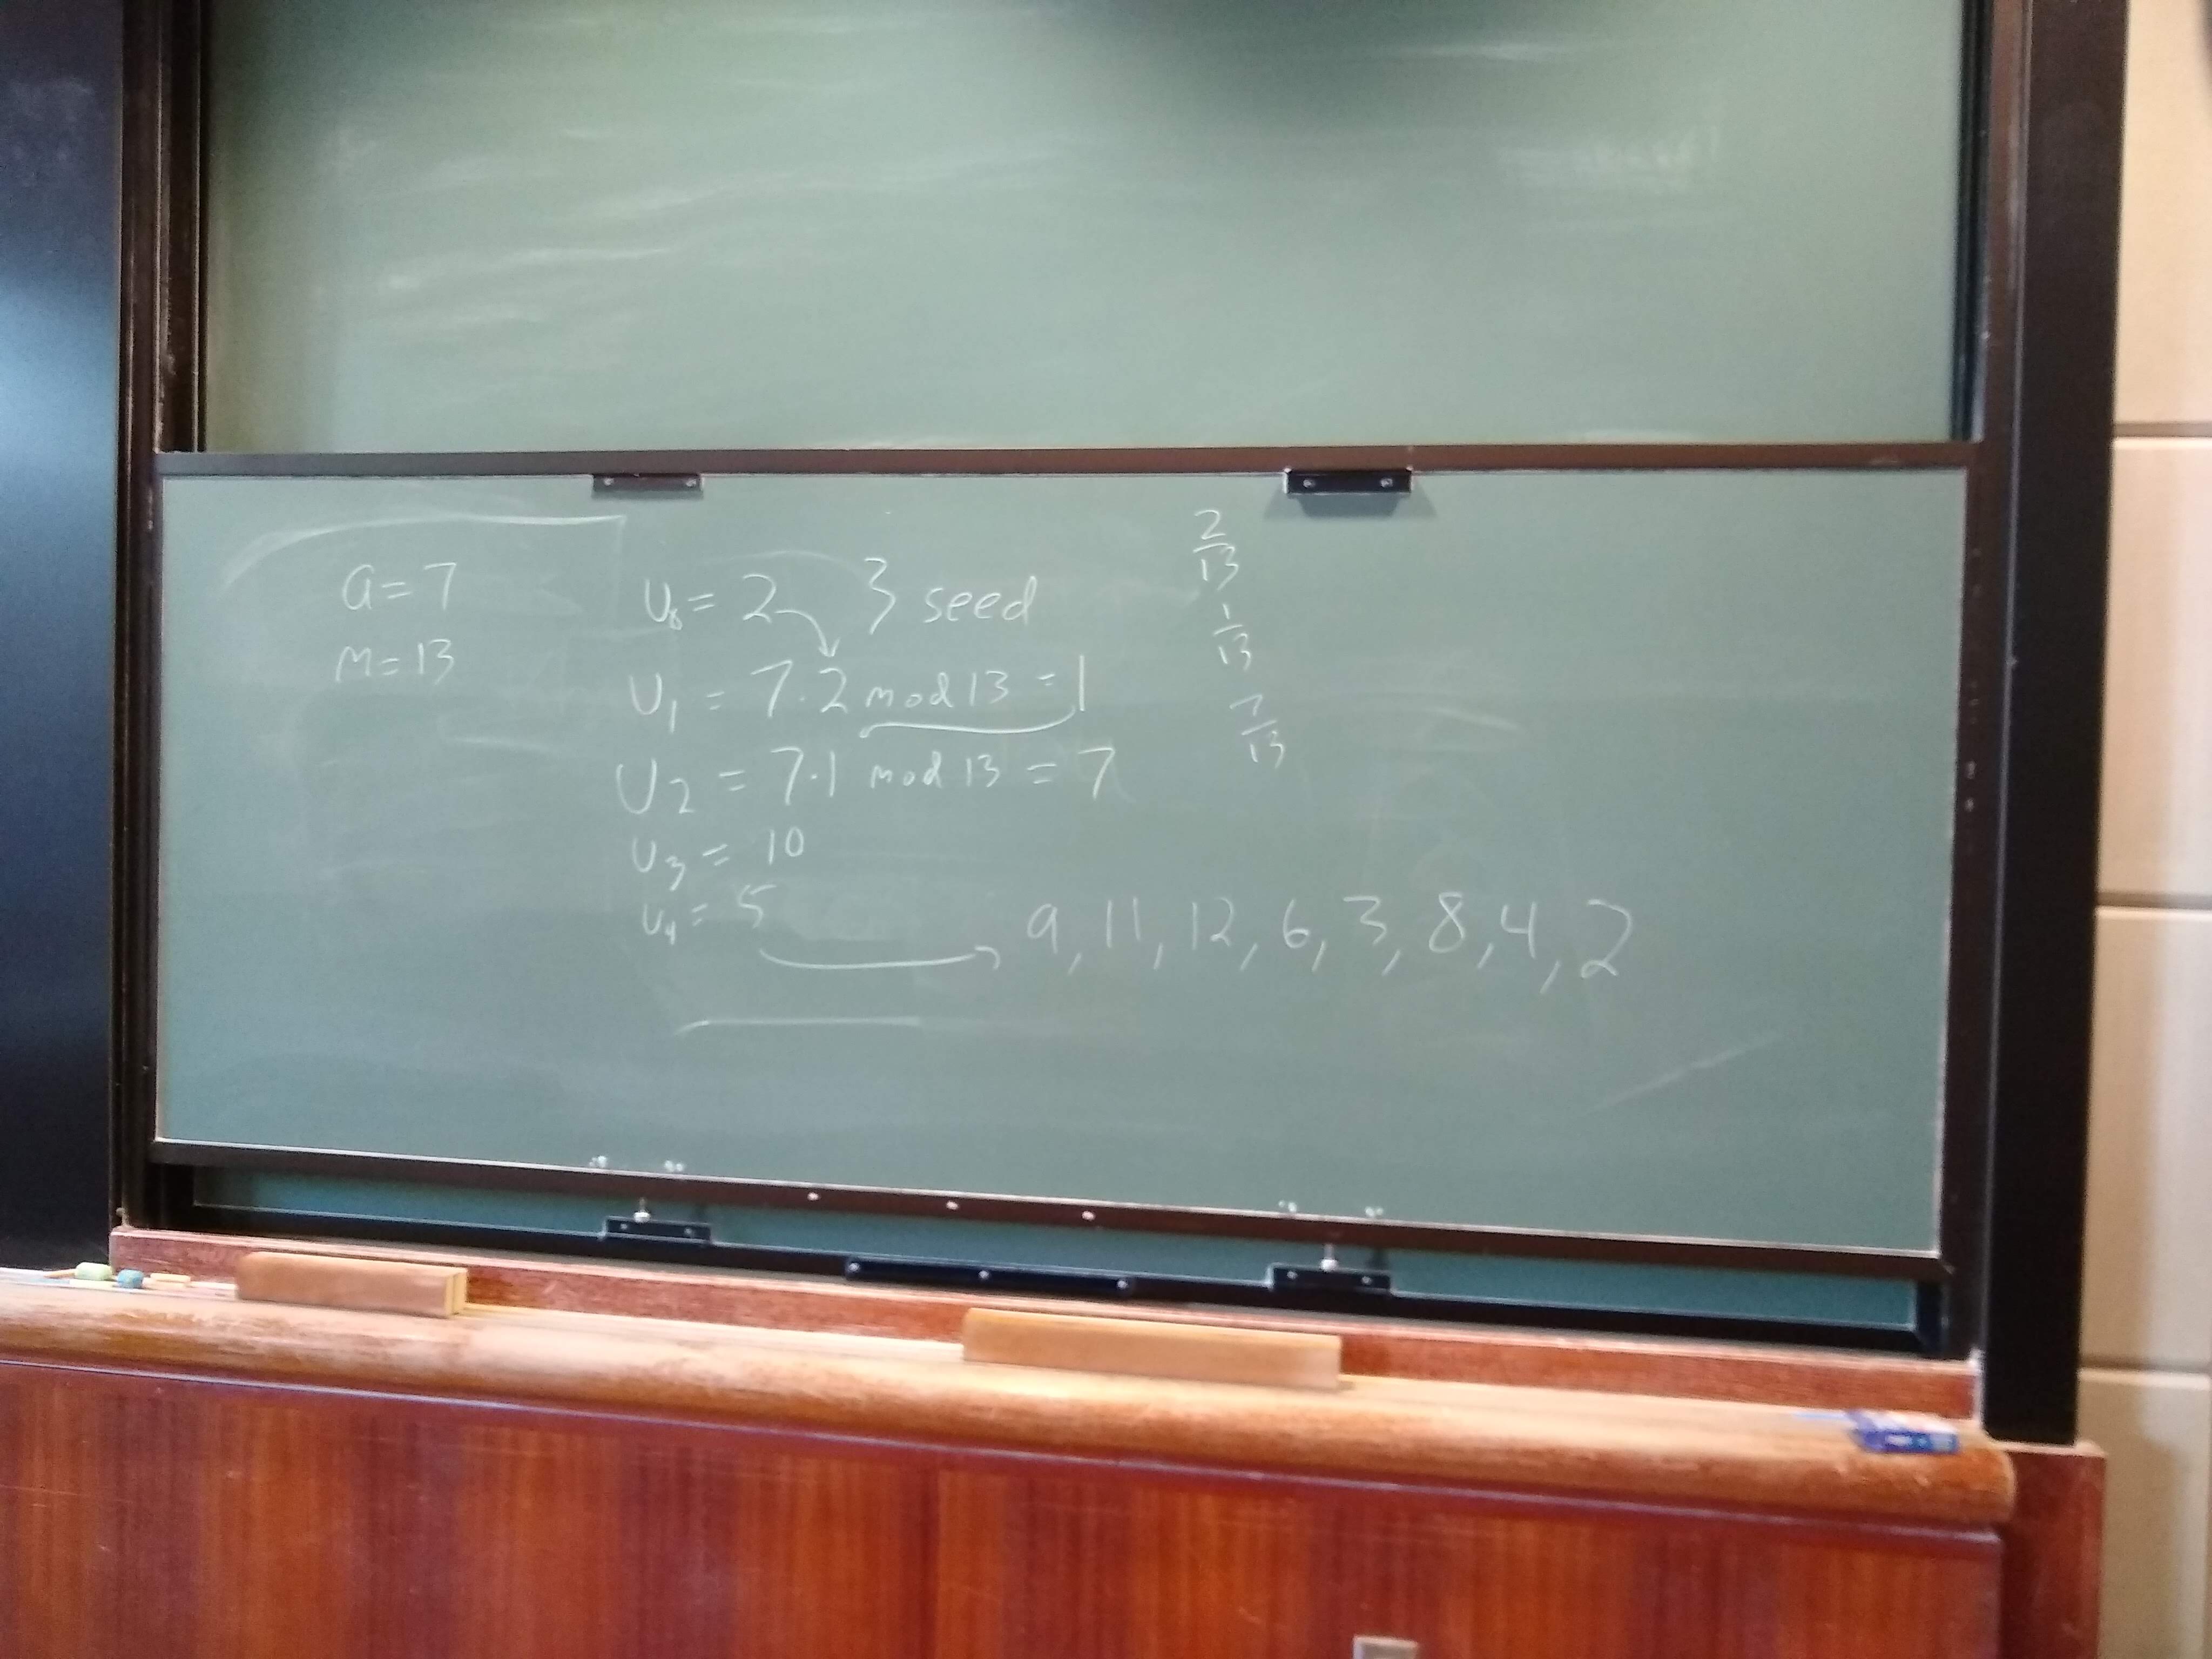 a = 7
m = 13
U₀ = 2 } seed
U₁ = 7·2 mod 13 = 1
U₂ = 7·1 mod 13 = 7
U₃ = 10
U₄ = 5
9, 11, 12, 6, 3, 8, 4, 2
2/13
1/13
7/13